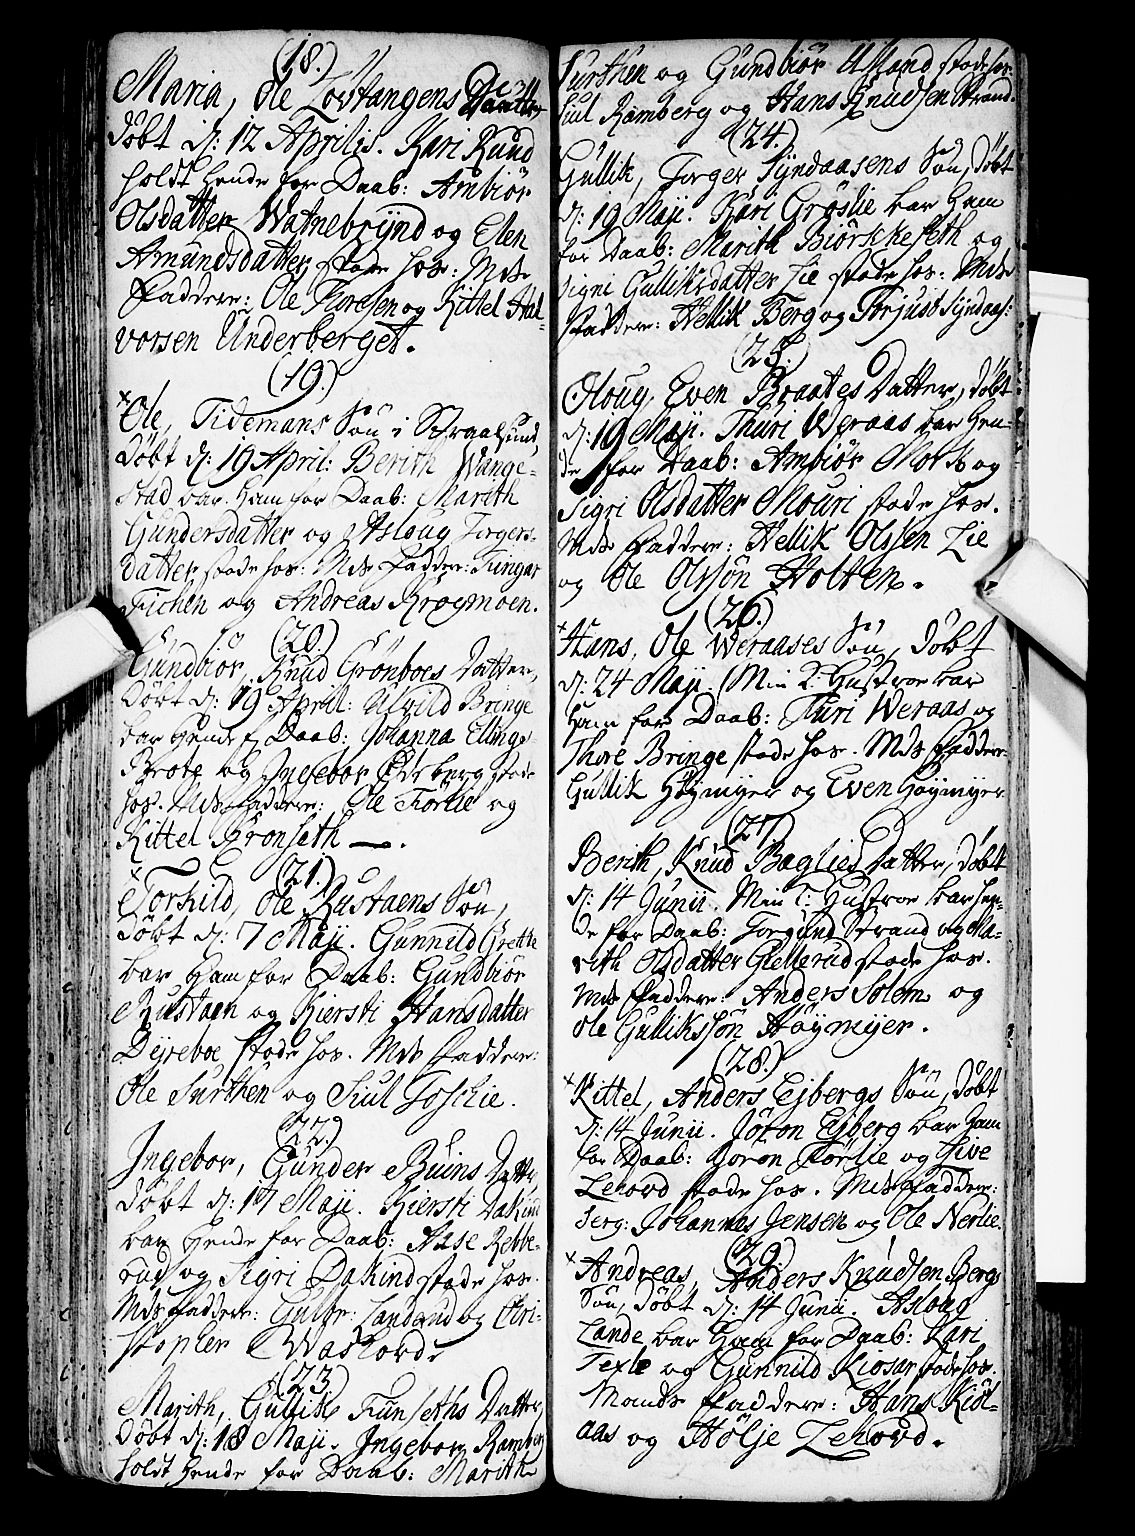 (18.)
Maria, Ole Lovtangens Datter
Døbt d: 12 Aprilis. Kari Ruud
holdt hende for Daab: Ambiør
Olsdatter Watnebrynd og Elen
Amundsdatter stode hos: Mds
Faddere: Ole Thoresen og Kittel Hal-
vorsen Underberget.
(19.)
Ole, Tidemans Søn i Straalsund,
Døbt d: 19 April: Berith Wange-
stad bar ham for Daab: Marith
Gundersdatter og Aslaug Torgers-
datter stode hos: Mds Faddere: Tingar
Fichen og Andreas Krogmoen.
(20.)
Gundbiør, Knud Grønboes Datter,
Døbt d: 19 April: Ulvild Bringe
bar hende f Daab: Johanna Ellings
Brote og Ingebor Edsberg stode
hos. Mds Faddere: Ole Førlie og
Kittel Fronseth.
(21.)
Torkild, Ole Rustaens Søn,
Døbt d: 7 Maji. Gunnild Grette
bar ham for Daab: Gundbiør
Rustaen og Kiersti Hansdatter
Dyreboe stode hos. Mds Faddere:
Ole Surthen og Siul Foslie.
(22.)
Ingebor, Gunder Buins Datter
Døbt d: 17 Maji. Kiersti Dakind
bar hende for Daab: Aase Rebbe-
rud og Sigri Dakind stode hos.
Mds Faddere: Gulbr: Landrud og Chri-
stopher Waskord.
(23)
Marith, Gullik Funseths Datter,
Døbt d: 18 Maji. Ingebor Ramberg
holdt hende for Daab: Marith
Surthen og Gundbiør Usland stode hos.
Siul Ramberg og Hans Knudsen Strand.
(24.)
Gullik, Torger Syndaasens Søn, Døbt
d: 19 Maji. Kari Grøslie bar ham
for Daab: Marith Biørskeseth og
Signi Gulliksdatter Lie stode hos: Mds
Faddere: Hellik Berg og Torjus Syndaas:
(25.)
Oloug, Even Braates Datter, Døbt
d: 19 Maji. Thuri Weraas bar hen-
de for Daab: Ambiør Mork og
Sigri Olsdatter Mouri stode hos.
Mds Faddere: Hellik Olssen Lie
og Ole Olssøn Holten.
(26.)
Hans, Ole Weraases Søn, Døbt
d: 24 Maji. (Min K: Hustroe bar
ham for Daab: Turi Weraas og
Thore Bringe stode hos. Mds Faddere:
Gullik Høymyer og Even Høymyer
(27)
Berith, Knud Baglies Datter, Døbt
d: 14 Junii. Min K: Hustroe bar hen-
de for Daab: Torgund Strand og Ma-
rith Olsdatter Giellerud stode hos.
Mds Faddere: Anders Solem og
Ole Gulliksøn Høymyer.
(28.)
Kittel, Anders Ejbergs Søn, Døbt
d: 14 Junii. Jøron Ejberg bar ham
for Daab: Joron Førlie og Give
Lekord stode hos. Mds Faddere:
Serg: Johannes Jensen og Ole Nerlie.
(29.)
Andreas, Anders Knudsen Bergs
Søn, Døbt d: 14 Junii. Aslaug
Lande bar ham for Daab: Kari
Texle og Gunnild Kiosar stode hos.
Mands Faddere: Hans Kiøl-
aas og Hølje Lekord.